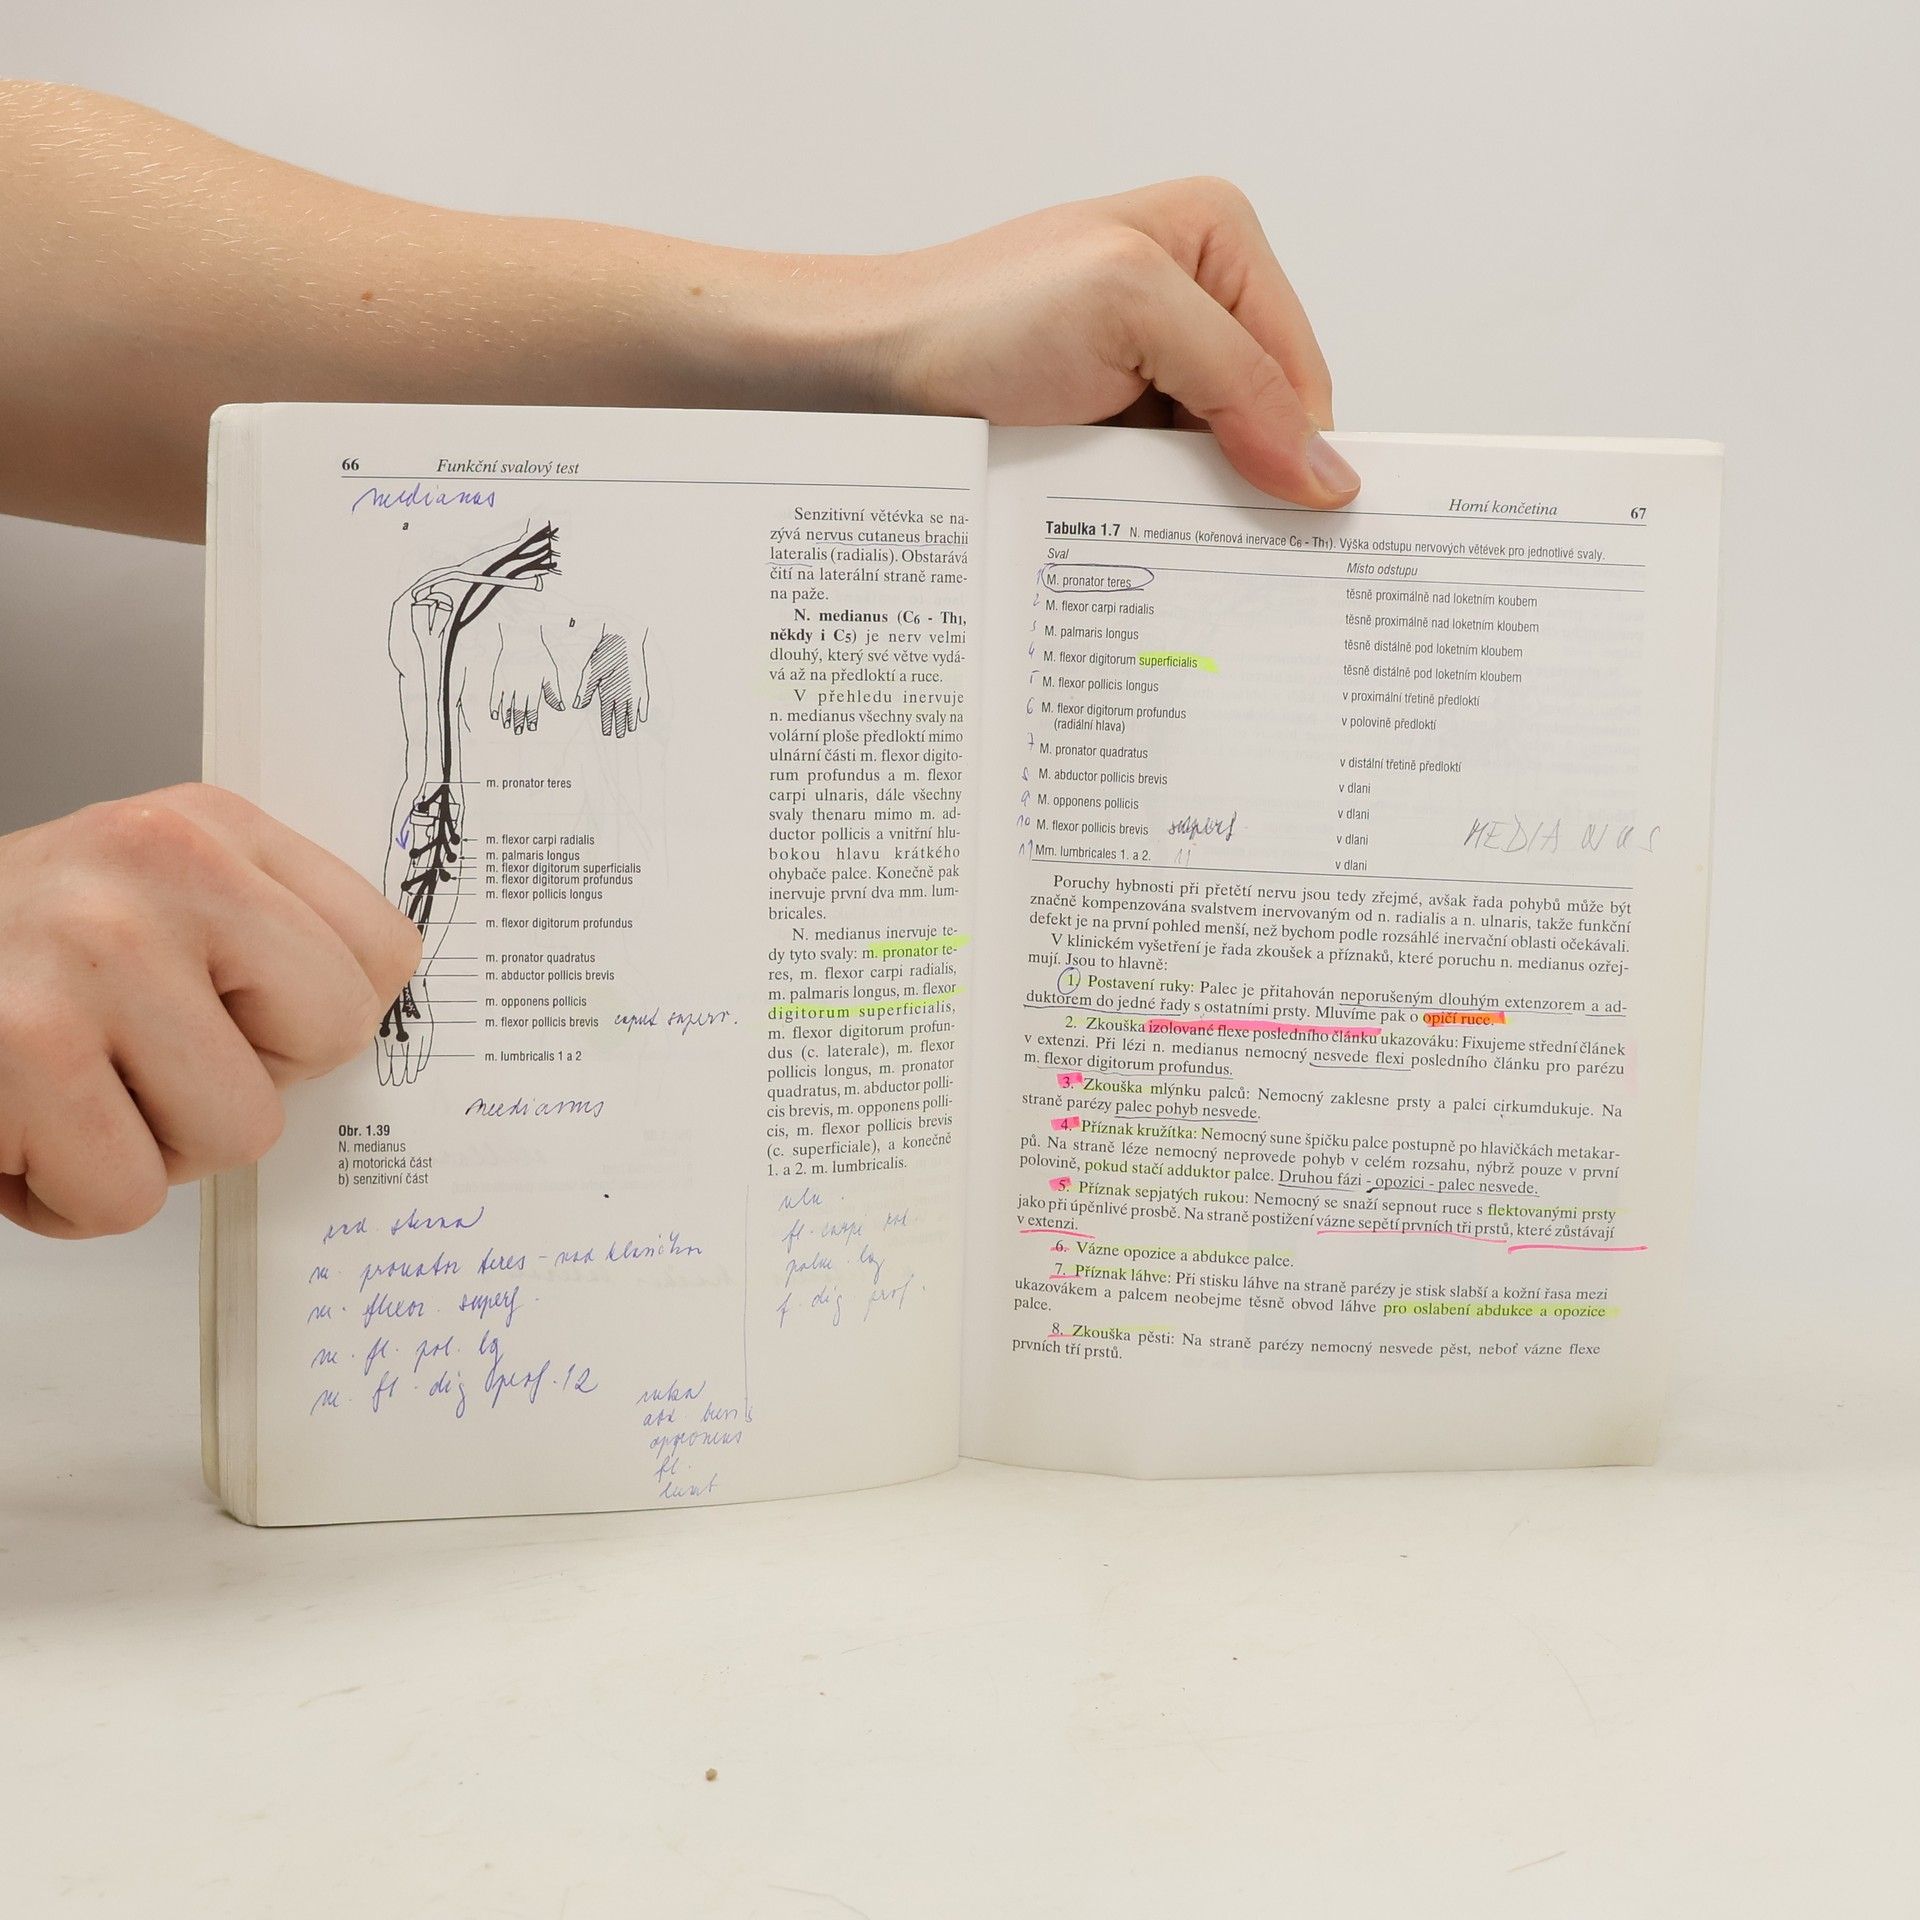 66 Funkční svalový test
medianus
a
b
m. pronator teres
m. flexor carpi radialis
m. palmaris longus
m. flexor digitorum superficialis
m. flexor digitorum profundus
m. flexor pollicis longus
m. flexor digitorum profundus
m. pronator quadratus
m. abductor pollicis brevis
m. opponens pollicis
m. flexor pollicis brevis caput superf.
m. lumbricalis 1 a 2
medianus
Obr. 1.39
N. medianus
a) motorická část
b) senzitivní část
m. pronator teres - nad
m. flexor. superf.
m. fl. pol. lg
m. fl. dig prof. 12
Senzitivní větévka se na-
zývá nervus cutaneus brachii
lateralis (radialis). Obstarává
čití na laterální straně rame-
na paže.
N. medianus (C6 - Th1,
někdy i C5) je nerv velmi
dlouhý, který své větve vydá-
vá až na předloktí a ruce.
V přehledu inervuje
n. medianus všechny svaly na
volární ploše předloktí mimo
ulnární části m. flexor digito-
rum profundus a m. flexor
carpi ulnaris, dále všechny
svaly thenaru mimo m. ad-
ductor pollicis a vnitřní hlu-
bokou hlavu krátkého
ohybače palce. Konečně pak
inervuje první dva mm. lum-
bricales.
N. medianus inervuje te-
dy tyto svaly: m. pronator te-
res, m. flexor carpi radialis,
m. palmaris longus, m. flexor
digitorum superficialis,
m. flexor digitorum profun-
dus (c. laterale), m. flexor
pollicis longus, m. pronator
quadratus, m. abductor polli-
cis brevis, m. opponens polli-
cis, m. flexor pollicis brevis
(c. superficiale), a konečně
1. a 2. m. lumbricalis.
fl. carpi rad.
palm. lg
f. dig. prof.
ruka
abd. brevis
opponens
fl.
lumb
Horní končetina 67
Tabulka 1.7 N. medianus (kořenová inervace C6 - Th1). Výška odstupu nervových větévek pro jednotlivé svaly.
Sval Místo odstupu
1 M. pronator teres těsně proximálně nad loketním koubem
2 M. flexor carpi radialis těsně proximálně nad loketním kloubem
3 M. palmaris longus těsně distálně pod loketním kloubem
4 M. flexor digitorum superficialis těsně distálně pod loketním kloubem
5 M. flexor pollicis longus v proximální třetině předloktí
6 M. flexor digitorum profundus v polovině předloktí
(radiální hlava)
7 M. pronator quadratus v distální třetině předloktí
8 M. abductor pollicis brevis v dlani
9 M. opponens pollicis v dlani
10 M. flexor pollicis brevis superf v dlani MEDIANUS
11 Mm. lumbricales 1. a 2. v dlani
Poruchy hybnosti při přetětí nervu jsou tedy zřejmé, avšak řada pohybů může být
značně kompenzována svalstvem inervovaným od n. radialis a n. ulnaris, takže funkční
defekt je na první pohled menší, než bychom podle rozsáhlé inervační oblasti očekávali.
V klinickém vyšetření je řada zkoušek a příznaků, které poruchu n. medianus ozřej-
mují. Jsou to hlavně:
1. Postavení ruky: Palec je přitahován neporušeným dlouhým extenzorem a ad-
duktorem do jedné řady s ostatními prsty. Mluvíme pak o opičí ruce.
2. Zkouška izolované flexe posledního článku ukazováku: Fixujeme střední článek
v extenzi. Při lézi n. medianus nemocný nesvede flexi posledního článku pro parézu
m. flexor digitorum profundus.
3. Zkouška mlýnku palců: Nemocný zaklesne prsty a palci cirkumdukuje. Na
straně parézy palec pohyb nesvede.
4. Příznak kružítka: Nemocný sune špičku palce postupně po hlavičkách metakar-
pů. Na straně léze nemocný neprovede pohyb v celém rozsahu, nýbrž pouze v první
polovině, pokud stačí adduktor palce. Druhou fázi - opozici - palec nesvede.
5. Příznak sepjatých rukou: Nemocný se snaží sepnout ruce s flektovanými prsty
jako při úpěnlivé prosbě. Na straně postižení vázne sepětí prvních tří prstů, které zůstávají
v extenzi.
6. Vázne opozice a abdukce palce.
7. Příznak láhve: Při stisku láhve na straně parézy je stisk slabší a kožní řasa mezi
ukazovákem a palcem neobejme těsně obvod láhve pro oslabení abdukce a opozice
palce.
8. Zkouška pěsti: Na straně parézy nemocný nesvede pěst, neboť vázne flexe
prvních tří prstů.